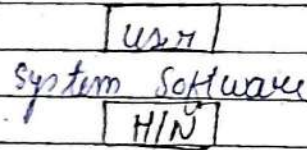 user
System Software
H/W